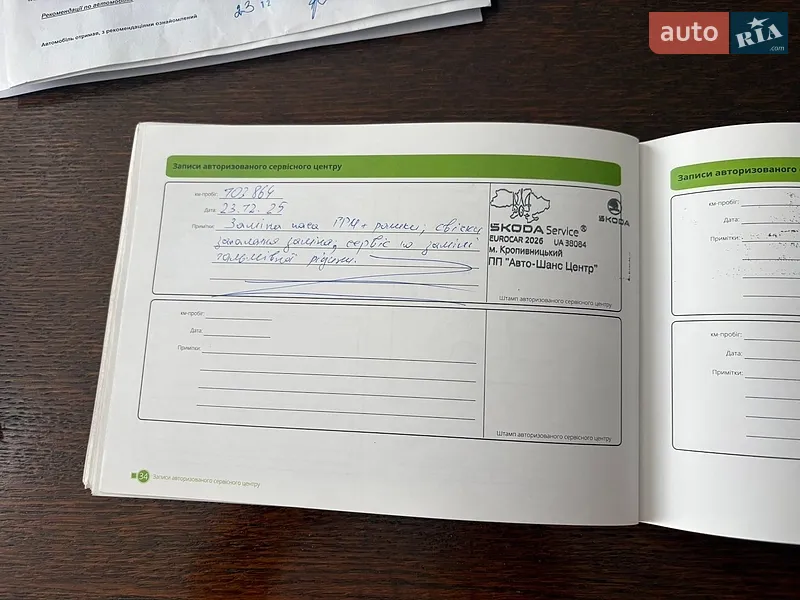 Рекомендації по автомобілю
23 12
Автомобіль отримав, з рекомендаціями ознайомлений
auto RIA .com
Записи авторизованого сервісного центру
км-пробіг: 103 864
Дата: 23.12.25
Примітки: Заміна паса ГРМ + ролики, свічки
запалання заміна, сервіс по заміні
гальмівної рідини.
ŠKODA
ŠKODA Service®
EUROCAR 2026 UA 38084
м. Кропивницький
ПП "Авто-Шанс Центр"
Штамп авторизованого сервісного центру
км-пробіг:
Дата:
Примітки:
Штамп авторизованого сервісного центру
34 Записи авторизованого сервісного центру
Записи авторизованого
км-пробіг:
Дата:
Примітки:
км-пробіг:
Дата:
Примітки: